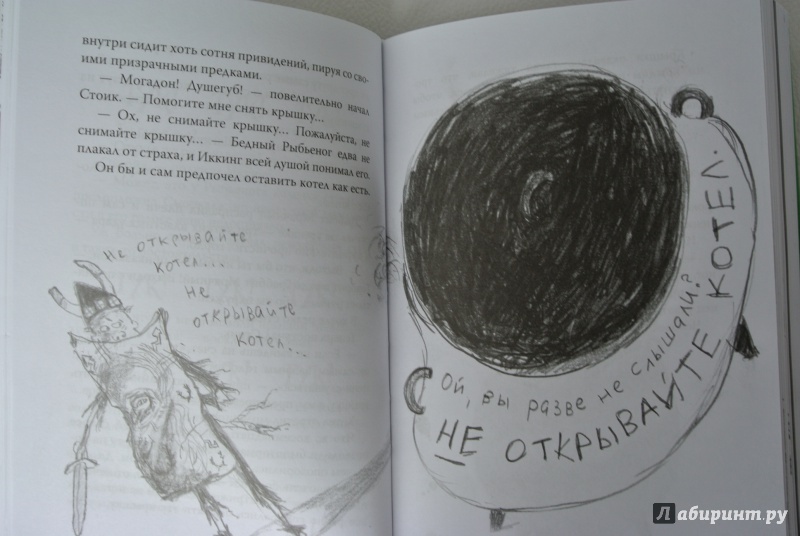 внутри сидит хоть сотня привидений, пируя со сво-
ими призрачными предками.
— Могадон! Душегуб! — повелительно начал
Стоик. — Помогите мне снять крышку...
— Ох, не снимайте крышку... Пожалуйста, не
снимайте крышку... — Бедный Рыбьеног едва не
плакал от страха, и Иккинг всей душой понимал его.
Он бы и сам предпочел оставить котел как есть.
не открывайте
котел...
не
открывайте
котел...
Ой, вы разве не слышали?
НЕ ОТКРЫВАЙТЕ КОТЕЛ.
Лабиринт.ру